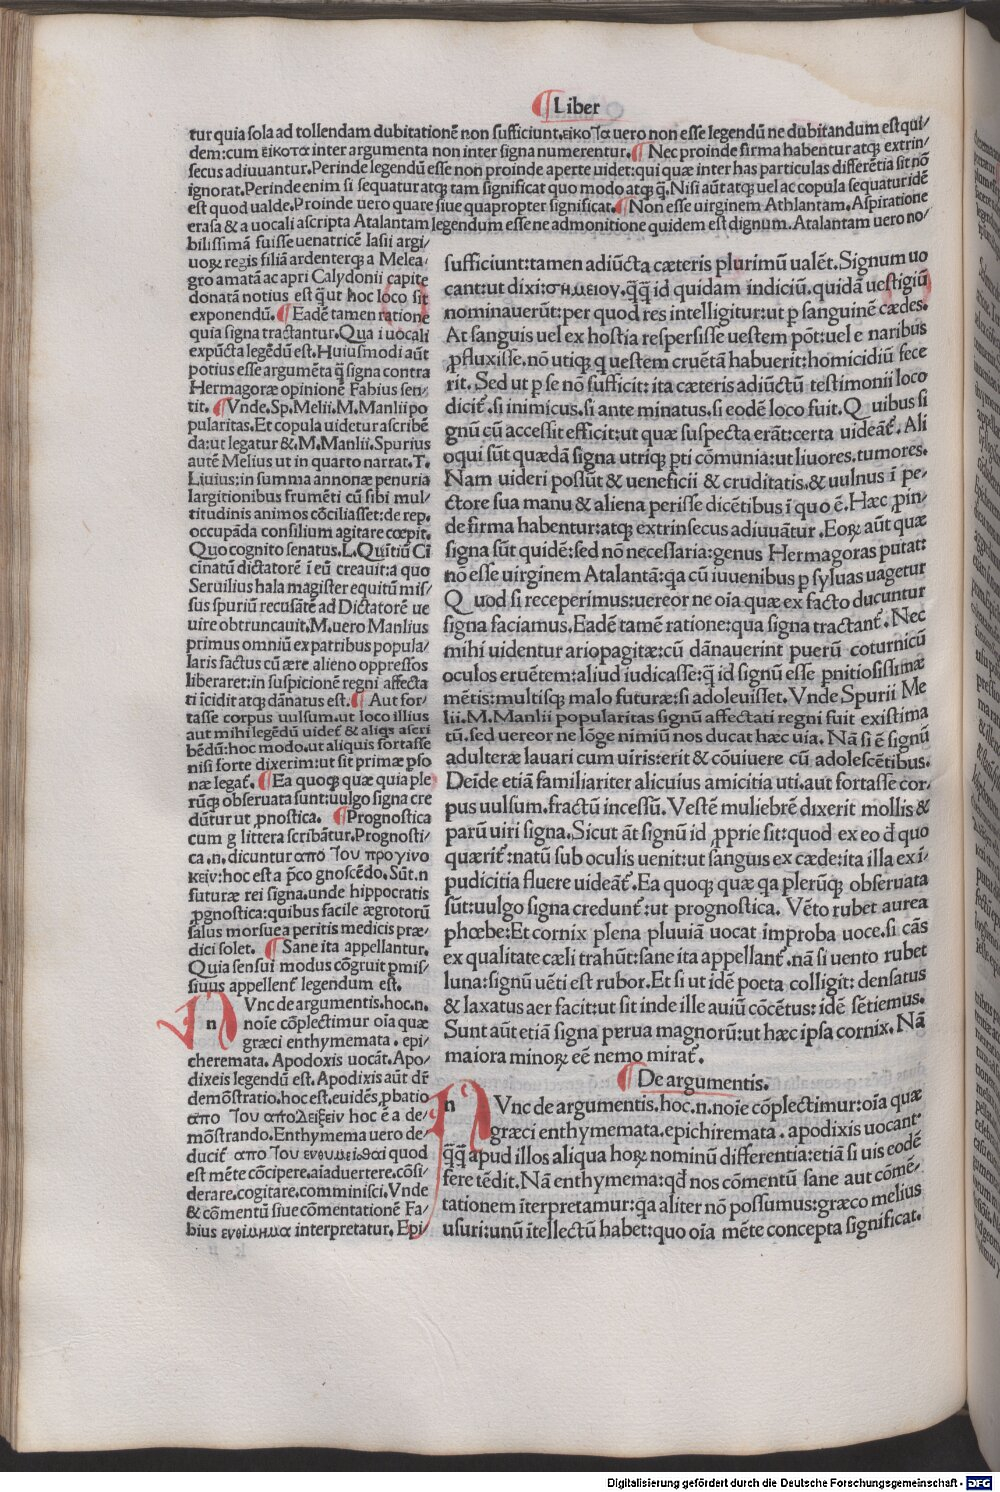 ¶Liber
tur quia sola ad tollendam dubitationē non sufficiunt.εικοΤα uero non esse legendū ne dubitandum est qui/
dem:cum εικοτα inter argumenta non inter signa numerentur.¶Nec proinde firma habentur atq; extrin/
secus adiuuantur.Perinde legendū esse non proinde aperte uidet:qui quæ inter has particulas differētia sit nō
ignorat.Perinde enim si sequatur atq; tam significat quo modo atq; q̄.Nisi aūt atq; uel ac copula sequatur idē
est quod ualde.Proinde uero quare siue quapropter significat.¶Non esse uirginem Athlantam.Aspiratione
erasa & a uocali ascripta Atalantam legendum esse ne admonitione quidem est dignum.Atalantam uero no/
bilissimā fuisse uenatricē Iasii argi/
uoꝝ regis filiā ardenterq; a Melea/
gro amatā ac apri Calydonii capite
donatā notius est q̄ ut hoc loco sit
exponendū.¶Eadē tamen ratione
quia signa tractantur.Qua i uocali
expūcta legēdū est.Huiusmodi aūt
potius esse argumēta q̄ signa contra
Hermagoræ opinionē Fabius sen/
tit.¶Vnde.Sp.Melii.M.Manlii po
pularitas.Et copula uidetur ascribē
da:ut legatur &.M.Manlii.Spurius
autē Melius ut in quarto narrat.T.
Liuius:in summa annonæ penuria
largitionibus frumēti cū sibi mul/
titudinis animos cōciliasset:de rep.
occupāda consilium agitare cœpit.
Quo cognito senatus.L.Quītiū Ci
cinatū dictatorē ī eū creauit:a quo
Seruilius hala magister equitū mis/
sus spuriū recusātē ad Dictatorē ue
uire obtruncauit.M.uero Manlius
primus omniū ex patribus popula/
laris factus cū ære alieno oppressos
liberaret:in suspicionē regni affecta
ti īcidit atq; dānatus est.¶Aut for/
tasse corpus uulsum.ut loco illius
aut mihi legēdū uidet̃ & aliqs aseri
bēdū:hoc modo.ut aliquis fortasse
nisi forte dixerim:ut sit primæ pso
næ legat̃.¶Ea quoq; quæ quia ple
rūq; obseruata sunt:uulgo signa cre
dūtur ut ꝓnostica.¶Prognostica
cum g littera scribātur.Prognosti/
ca.n.dicuntur απο Του προγινο
κειν:hoc est a p̄co gnoscēdo.Sūt.n
futuræ rei signa.unde hippocratis
ꝓgnostica:quibus facile ægrotorū
salus morsue a peritis medicis præ/
dici solet.¶Sane ita appellantur.
Quia sensui modus cōgruit p̄mis/
siuus appellent̃ legendum est.
n Vnc de argumentis.hoc.n.
noīe cōplectimur oīa quæ
græci enthymemata.epi/
cheremata.Apodoxis uocāt.Apo/
dixeis legendū est.Apodixis aūt dr̄
demōstratio.hoc est.euidēs ꝓbatio
απο Του αποΔειξειν hoc ē a de/
mōstrando.Enthymema uero de/
ducit̃ απο Του ενθυμεισθαι quod
est mēte cōcipere.aīaduertere.cōsi/
derare.cogitare.comminisci.Vnde
& cōmentū siue cōmentationē Fa/
bius ενθιμημα interpretatur.Epi
sufficiunt:tamen adiūcta cæteris plurimū ualēt.Signum uo
cant:ut dixi:σημειου.q̄q̄ id quidam indiciū.quidā uestigiū
nominauerūt:per quod res intelligitur:ut p sanguinē cædes.
At sanguis uel ex hostia respersisse uestem pōt:uel e naribus
ꝓfluxisse.nō utiq; q uestem cruētā habuerit:homicidiū fece
rit.Sed ut p se nō sufficit:ita cæteris adiūctū testimonii loco
dicit̃.si inimicus.si ante minatus.si eodē loco fuit.Quibus si
gnū cū accessit efficit:ut quæ suspecta erāt:certa uideāt̃.Ali
oqui sūt quædā signa utriq; pti cōmunia:ut liuores.tumores.
Nam uideri possūt & ueneficii & cruditatis.& uulnus ī pe/
ctore sua manu & aliena perisse dicētibus ī quo ē.Hæc ꝓin/
de firma habentur:atq; extrinsecus adiuuātur.Eoꝝ aūt quæ
signa sūt quidē:sed nō necessaria:genus Hermagoras putat:
nō esse uirginem Atalantā:qa cū iuuenibus p syluas uagetur
Quod si receperimus:uereor ne oīa quæ ex facto ducuntur
signa faciamus.Eadē tamē ratione:qua signa tractant̃.Nec
mihi uidentur ariopagitæ:cū dānauerint puerū coturnicū
oculos eruētem:aliud iudicasse:q̄ id signū esse pnitiosissimæ
mētis:multisq; malo futuræ:si adoleuisset.Vnde Spurii Me
lii.M.Manlii popularitas signū affectati regni fuit existima
tū.sed uereor ne lōge nimiū nos ducat hæc uia.Nā si ē signū
adulteræ lauari cum uiris:erit & cōuiuere cū adolescētibus.
Deīde etiā familiariter alicuius amicitia uti.aut fortasse cor/
pus uulsum.fractū incessū.Vestē muliebrē dixerit mollis &
parū uiri signa.Sicut āt signū id ꝓprie sit:quod ex eo đ quo
quærit̃:natū sub oculis uenit:ut sanguis ex cæde:ita illa ex ī/
pudicitia fluere uideāt̃.Ea quoq; quæ qa plerūq; obseruata
sūt:uulgo signa credunt̃:ut prognostica.Vēto rubet aurea
phœbe:Et cornix plena pluuiā uocat improba uoce.si cās
ex qualitate cæli trahūt:sane ita appellant̃.nā si uento rubet
luna:signū uēti est rubor.Et si ut idē poeta colligit:densatus
& laxatus aer facit:ut sit inde ille auiū cōcētus:idē sētiemus.
Sunt aūt etiā signa perua magnorū:ut hæc ipsa cornix.Nā
maiora minoꝝ eē nemo mirat̃.
¶De argumentis.
n Vnc de argumentis.hoc.n.noīe cōplectimur:oīa quæ
græci enthymemata.epichiremata.apodixis uocant·
q̄q̄ apud illos aliqua hoꝝ nominū differentia:etiā si uis eodē
fere tēdit.Nā enthymema:qđ nos cōmentū sane aut cōmē/
tationem īterpretamur:qa aliter nō possumus:græco melius
usuri:unū ītellectū habet:quo oīa mēte concepta significat.
Digitalisierung gefördert durch die Deutsche Forschungsgemeinschaft - DFG